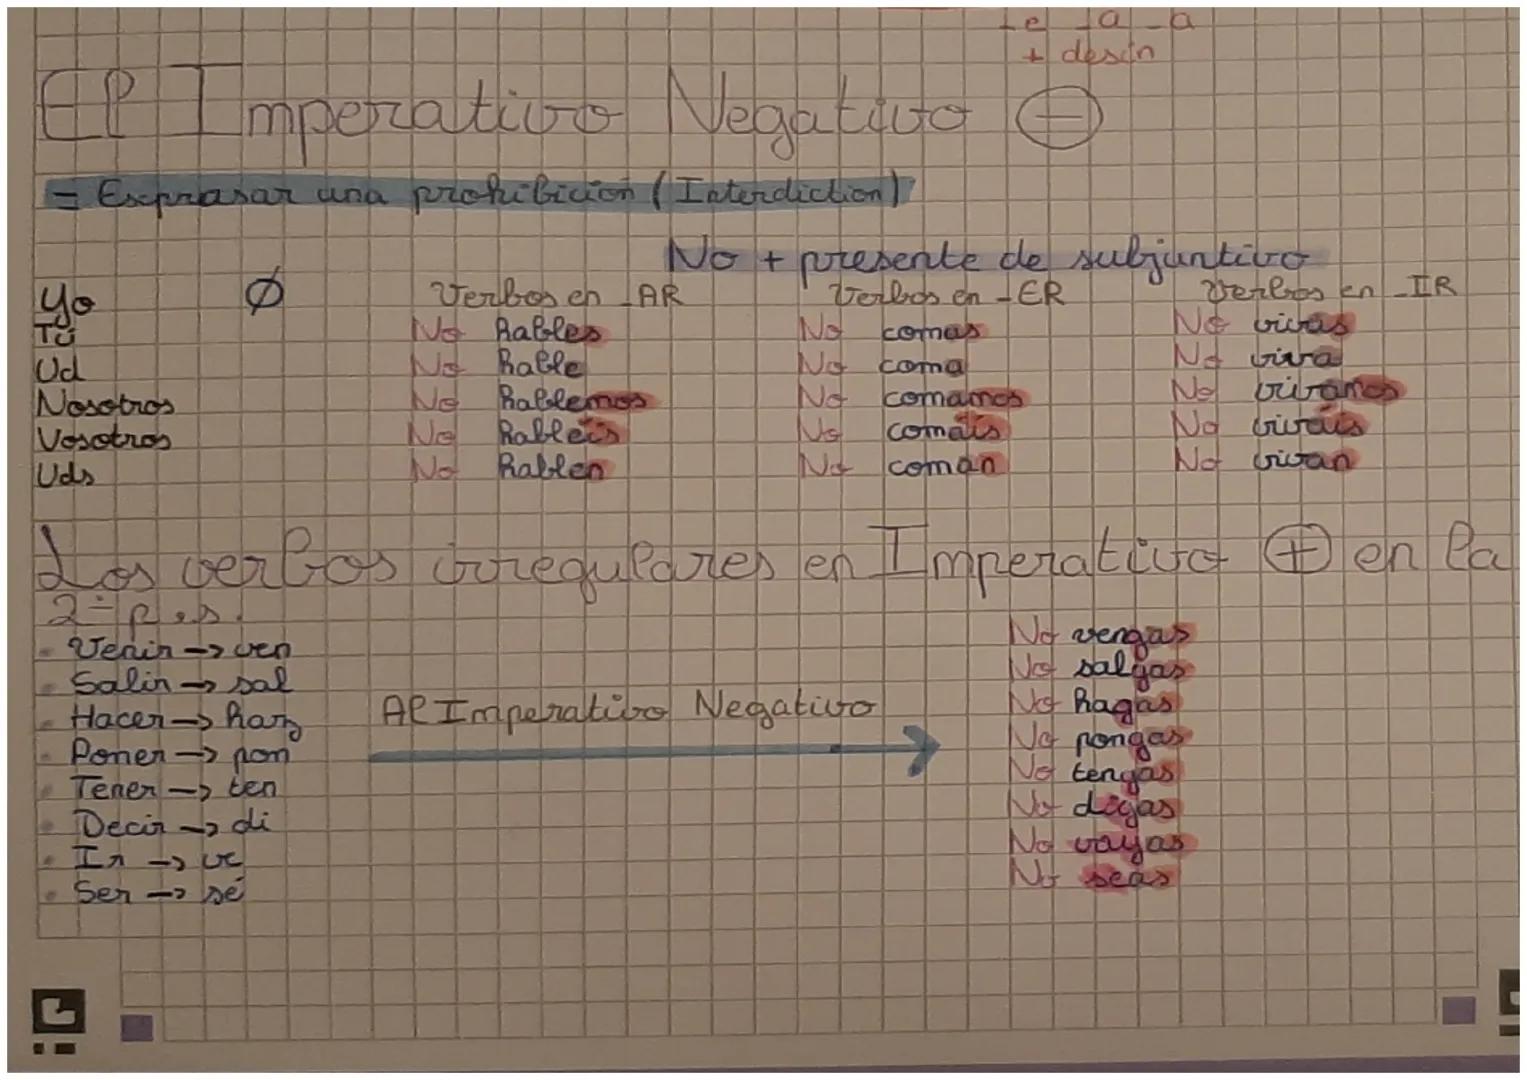 -e -a -a
+ desin
El Imperativo Negativo ⊖
= Exprasar una prohibición (Interdiction)
No + presente de subjuntivo
Yo Ø Verbos en -AR Verbos en -ER Verbos en -IR
Tú No hables No comas No vivas
Ud No hable No coma No viva
Nosotros No hablemos No comamos No vivamos
Vosotros No habléis No comáis No viváis
Uds No hablen No coman No vivan
Los verbos irregulares en Imperativo ⊕ en la
2ª p.s.
- Venir → ven No vengas
- Salir → sal No salgas
- Hacer → haz Al Imperativo Negativo No hagas
- Poner → pon No pongas
- Tener → ten No tengas
- Decir → di No digas
- Ir → ve No vayas
- Ser → sé No seas